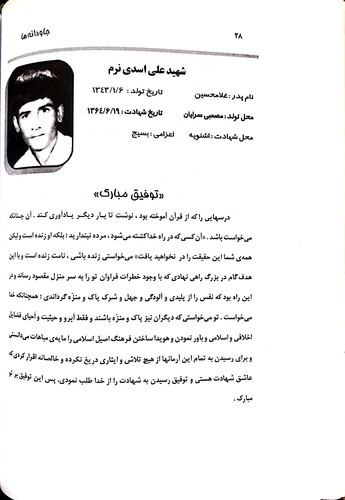 ۲۸
جاودانه‌ها
شهید علی اسدی نرم
نام پدر : غلامحسین
تاریخ تولد : ۱۳۴۳/۱/۶
محل تولد : مصعبی سرایان
تاریخ شهادت : ۱۳۶۴/۶/۱۹
محل شهادت : اشنویه
اعزامی : بسیج
«توفیق مبارک»
درسهایی را که از قرآن آموخته بود ، نوشت تا بار دیگر یادآوری کند . آن چنانکه
می‌خواست باشد . «آن کسی که در راه خدا کشته می‌شود ، مرده نپندارید ؛ بلکه او زنده است ولیکن
همه‌ی شما این حقیقت را در نخواهید یافت» می‌خواستی زنده باشی ، نامت زنده است و با این
هدف گام در بزرگ راهی نهادی که با وجود خطرات فراوان تو را به سر منزل مقصود رساند و در
این راه بود که نفس را از پلیدی و آلودگی و جهل و شرک پاک و منزّه گرداندی ؛ همچنانکه خدا
می‌خواست ، تو می‌خواستی که دیگران نیز پاک و منزّه باشند و فقط آبرو و حیثیت و احیای فضایل
اخلاقی و اسلامی و باور نمودن و هویدا ساختن فرهنگ اصیل اسلامی را مایه‌ی مباهات می‌دانستی
و برای رسیدن به تمام این آرمانها از هیچ تلاش و ایثاری دریغ نکرده و خالصانه اقرار کردی که
عاشق شهادت هستی و توفیق رسیدن به شهادت را از خدا طلب نمودی. پس این توفیق بر تو
مبارک .